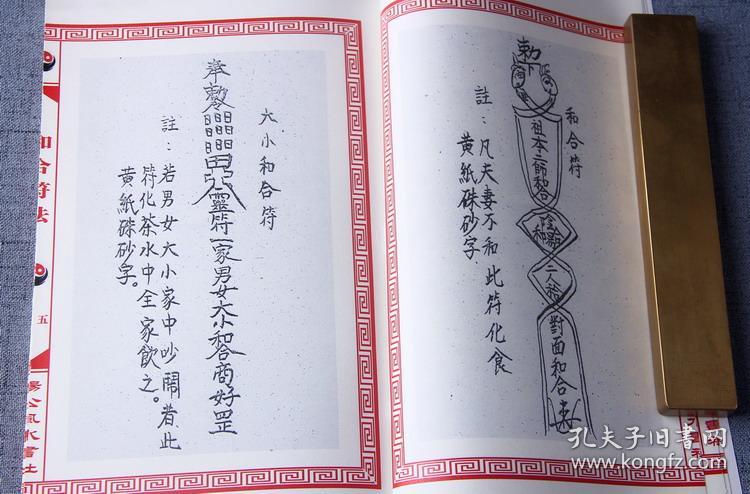 和合符
勅下
祖本二師和合
陰陽和
二人和
對面和合
註：凡夫妻不和此符化食
黃紙硃砂字
大小和合符
奉勅
靈符一家男女大小和合商好罡
註：若男女大小家中吵鬧者此
符化茶水中全家飲之。
黃紙硃砂字。
和合符法
五
楊公風水書社
孔夫子旧书网
www.kongfz.com